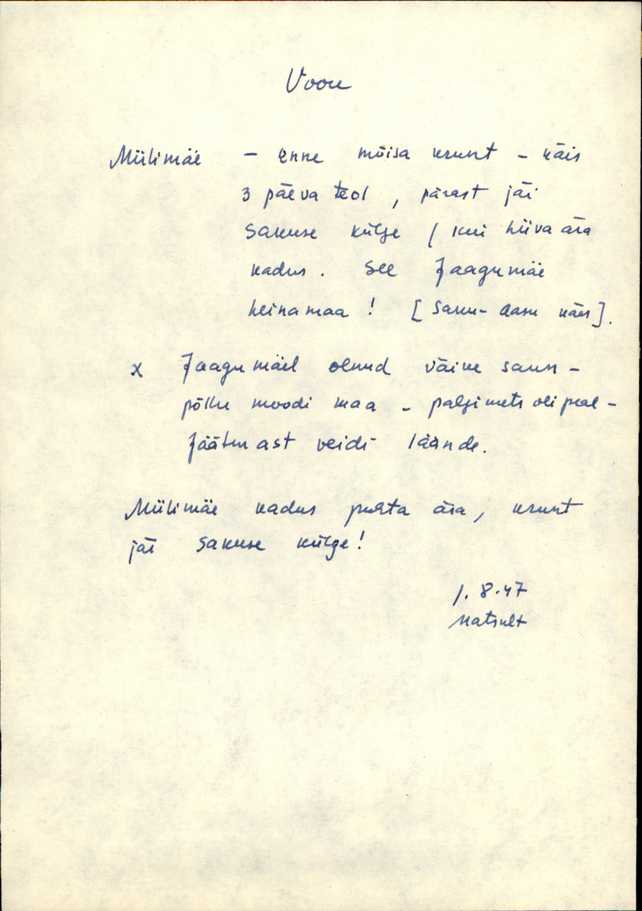 Voou
Mülimäe – enne mõisa krunt – käis
3 päeva teol, pärast jäi
Sakuse külge / kui hiiva ära
kadus. See Jaagumäe
heinamaa! [ käis].
x Jaagumäel olnud väike saun –
põllu moodi maa – palgimets oli peal –
Jäätmast veidi lände.
Mülimäe kadus puhta ära, krunt
jäi Sakuse külge!
1.8.47
Matsult